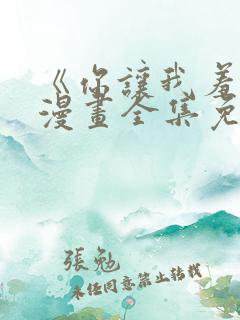 《你讓我羞
漫畫全集免
張勉
未经同意禁止转载